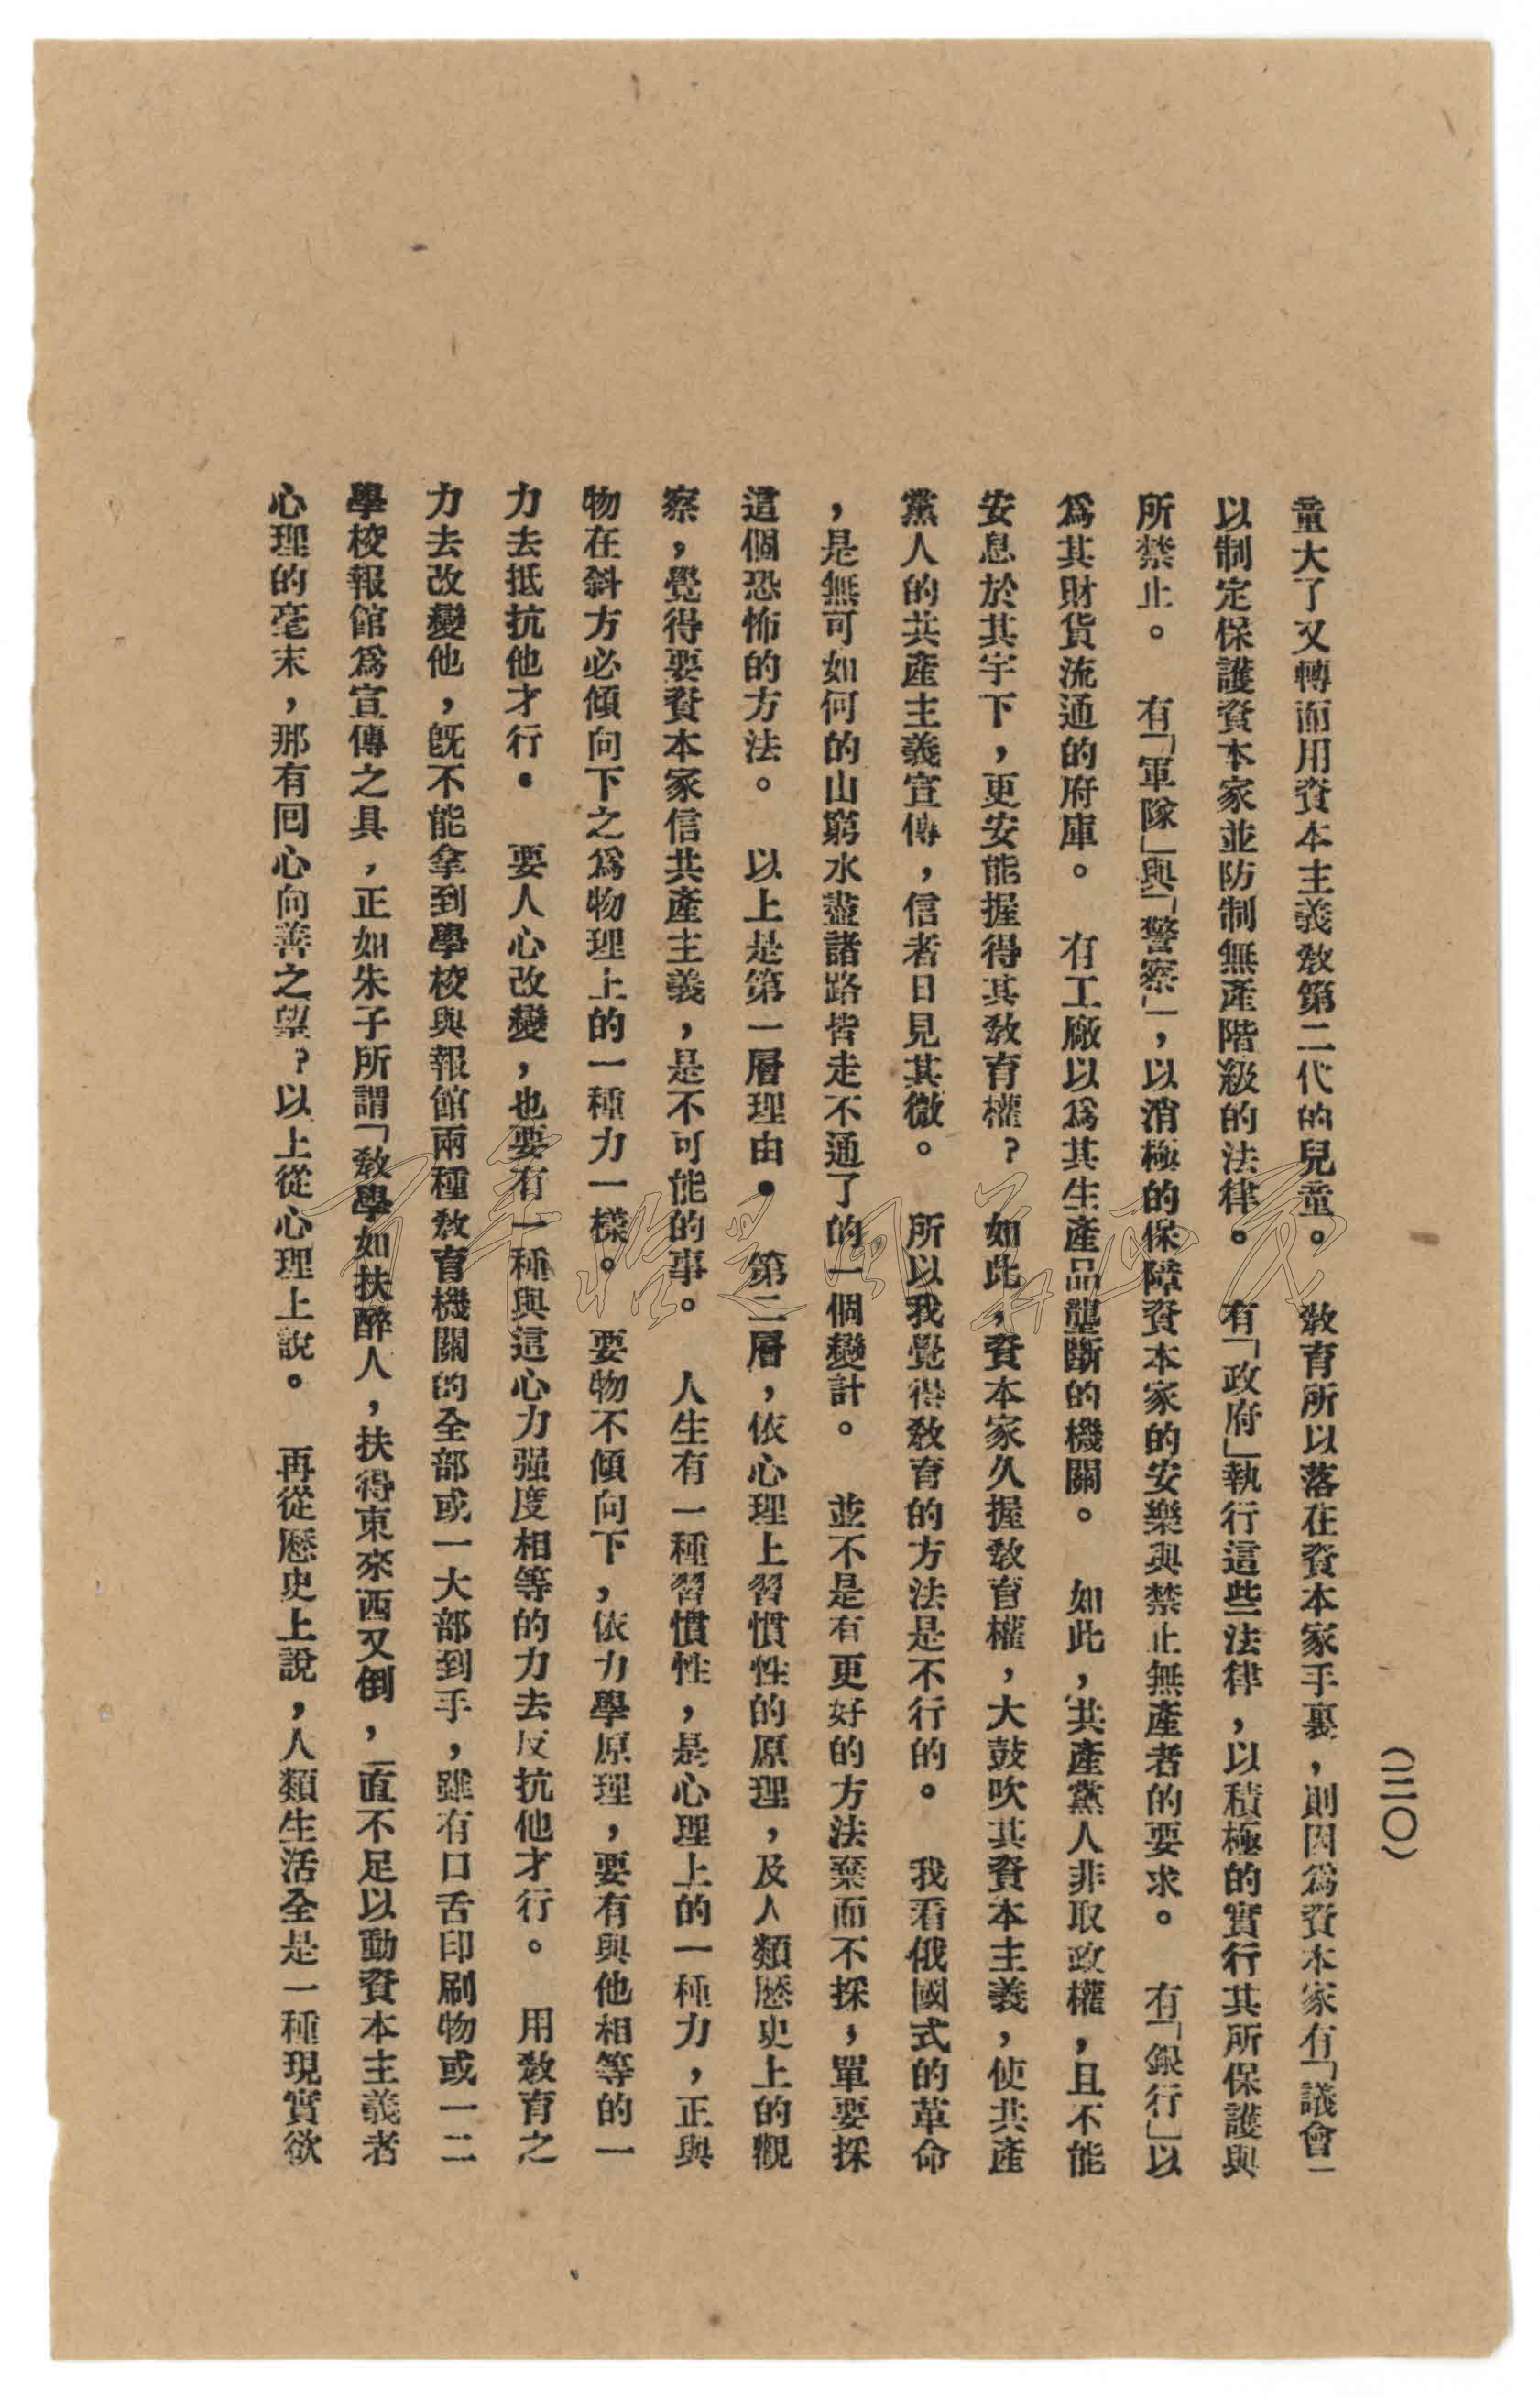 （二〇）
童大了又轉而用資本主義敎第二代的兒童。　敎育所以落在資本家手裏，則因爲資本家有「議會」
以制定保護資本家並防制無產階級的法律。　有「政府」執行這些法律，以積極的實行其所保護與
所禁止。　有「軍隊」與「警察」，以消極的保障資本家的安樂與禁止無產者的要求。　有「銀行」以
爲其財貨流通的府庫。　有工廠以爲其生產品壟斷的機關。　如此，共產黨人非取政權，且不能
安息於其宇下，更安能握得其敎育權？如此，資本家久握敎育權，大鼓吹其資本主義，使共產
黨人的共產主義宣傳，信者日見其微。　所以我覺得敎育的方法是不行的。　我看俄國式的革命
，是無可如何的山窮水盡諸路皆走不通了的一個變計。　並不是有更好的方法棄而不採，單要採
這個恐怖的方法。　以上是第一層理由•　第二層，依心理上習慣性的原理，及人類歷史上的觀
察，覺得要資本家信共產主義，是不可能的事。　人生有一種習慣性，是心理上的一種力，正與
物在斜方必傾向下之爲物理上的一種力一樣。　要物不傾向下，依力學原理，要有與他相等的一
力去抵抗他才行•　要人心改變，也要有一種與這心力强度相等的力去反抗他才行。　用敎育之
力去改變他，旣不能拿到學校與報館兩種敎育機關的全部或一大部到手，雖有口舌印刷物或一二
學校報館爲宣傳之具，正如朱子所謂「敎學如扶醉人，扶得東來西又倒，」直不足以動資本主義者
心理的毫末，那有回心向善之望？以上從心理上說。　再從歷史上說，人類生活全是一種現實欲